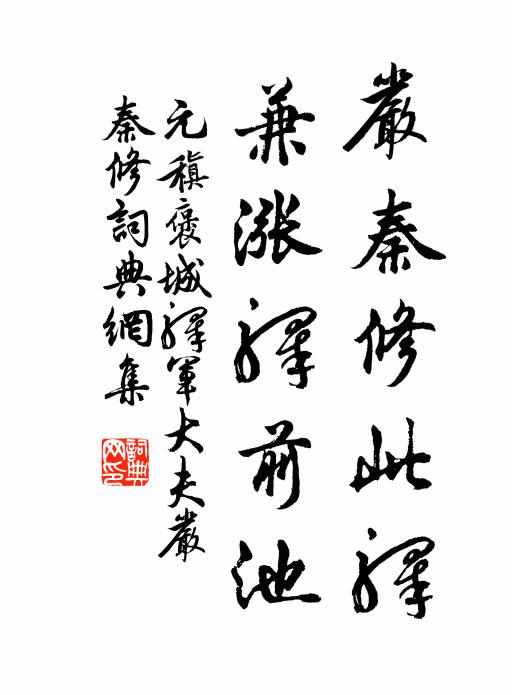 嚴秦修此驛
兼漲驛前池
元稹褒城驛軍大夫嚴
秦修詞典網集
詞典网印